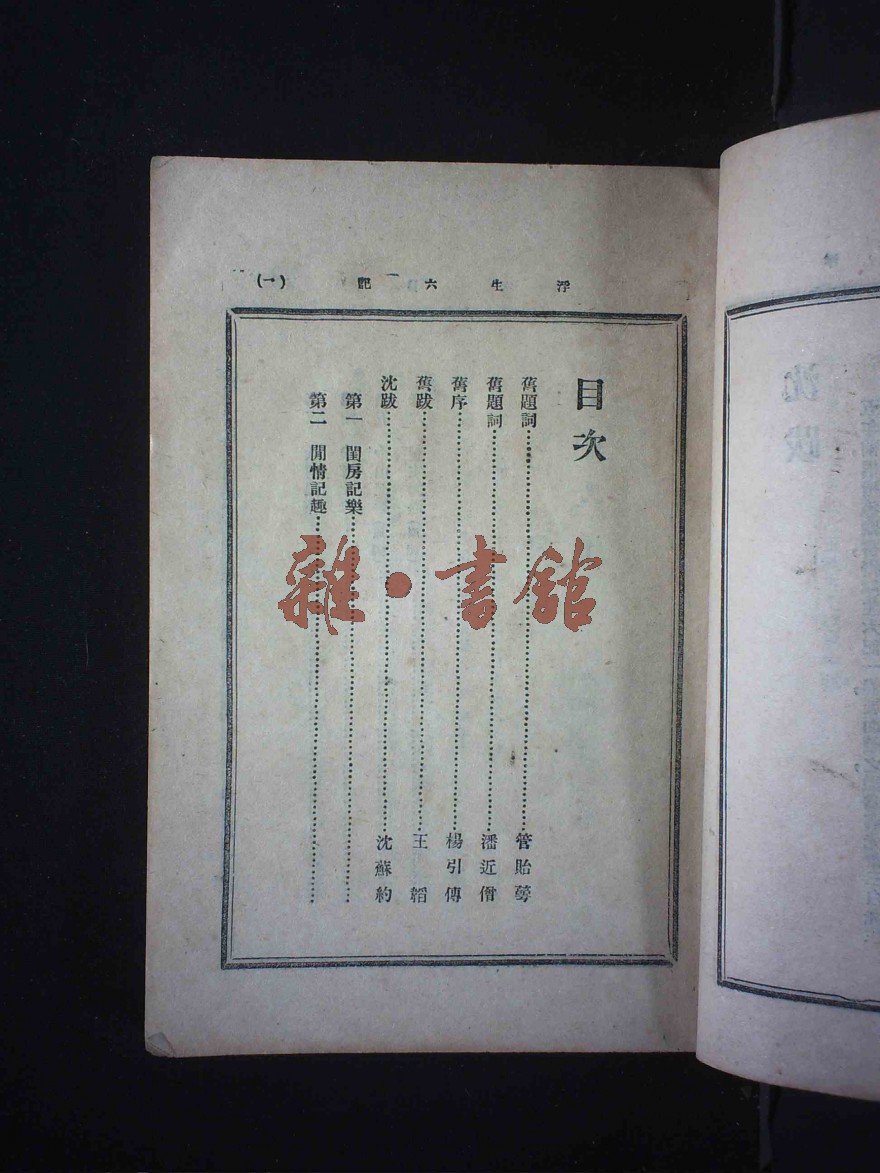 浮生六記
(一)
目次
舊題詞 管貽萼
舊題詞 潘近僧
舊序 楊引傳
舊跋 王韜
沈跋 沈蘇約
第一 閨房記樂
第二 閒情記趣
雜·書館
沈跋